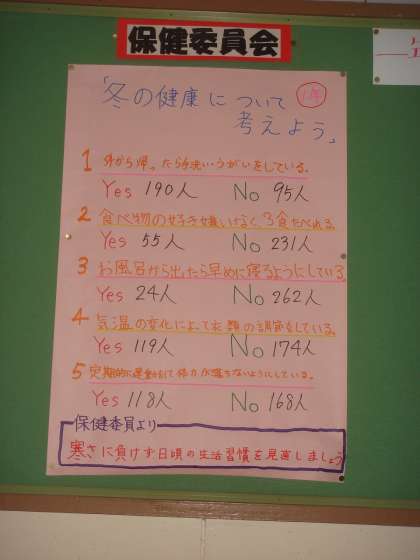 保健委員会
「冬の健康について
1年
考えよう。」
1 外から帰ったら手洗い・うがいをしている。
Yes 190人 No 95人
2 食べ物の好き嫌いなく、3食たべれる。
Yes 55人 No 231人
3 お風呂から出たら早めに寝るようにしている。
Yes 24人 No 262人
4 気温の変化によって衣類の調節をしている。
Yes 119人 No 174人
5 定期的に運動をして体力が落ちないようにしている。
Yes 118人 No 168人
保健委員より
寒さに負けず日頃の生活習慣を見直しましょう